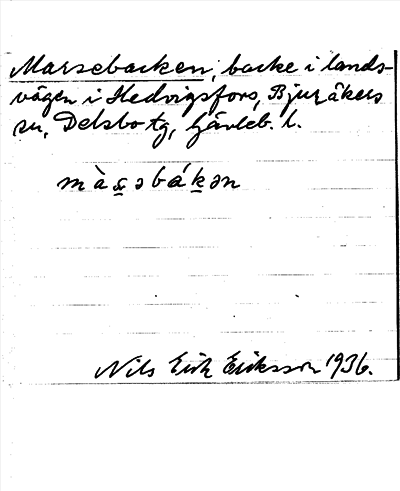 Marsebacken, backe i lands-
vägen i Hedvigsfors, Bjuråkers
sn, Delsbo tg, Gävleb. l.
Nils Erik Eriksson 1936.